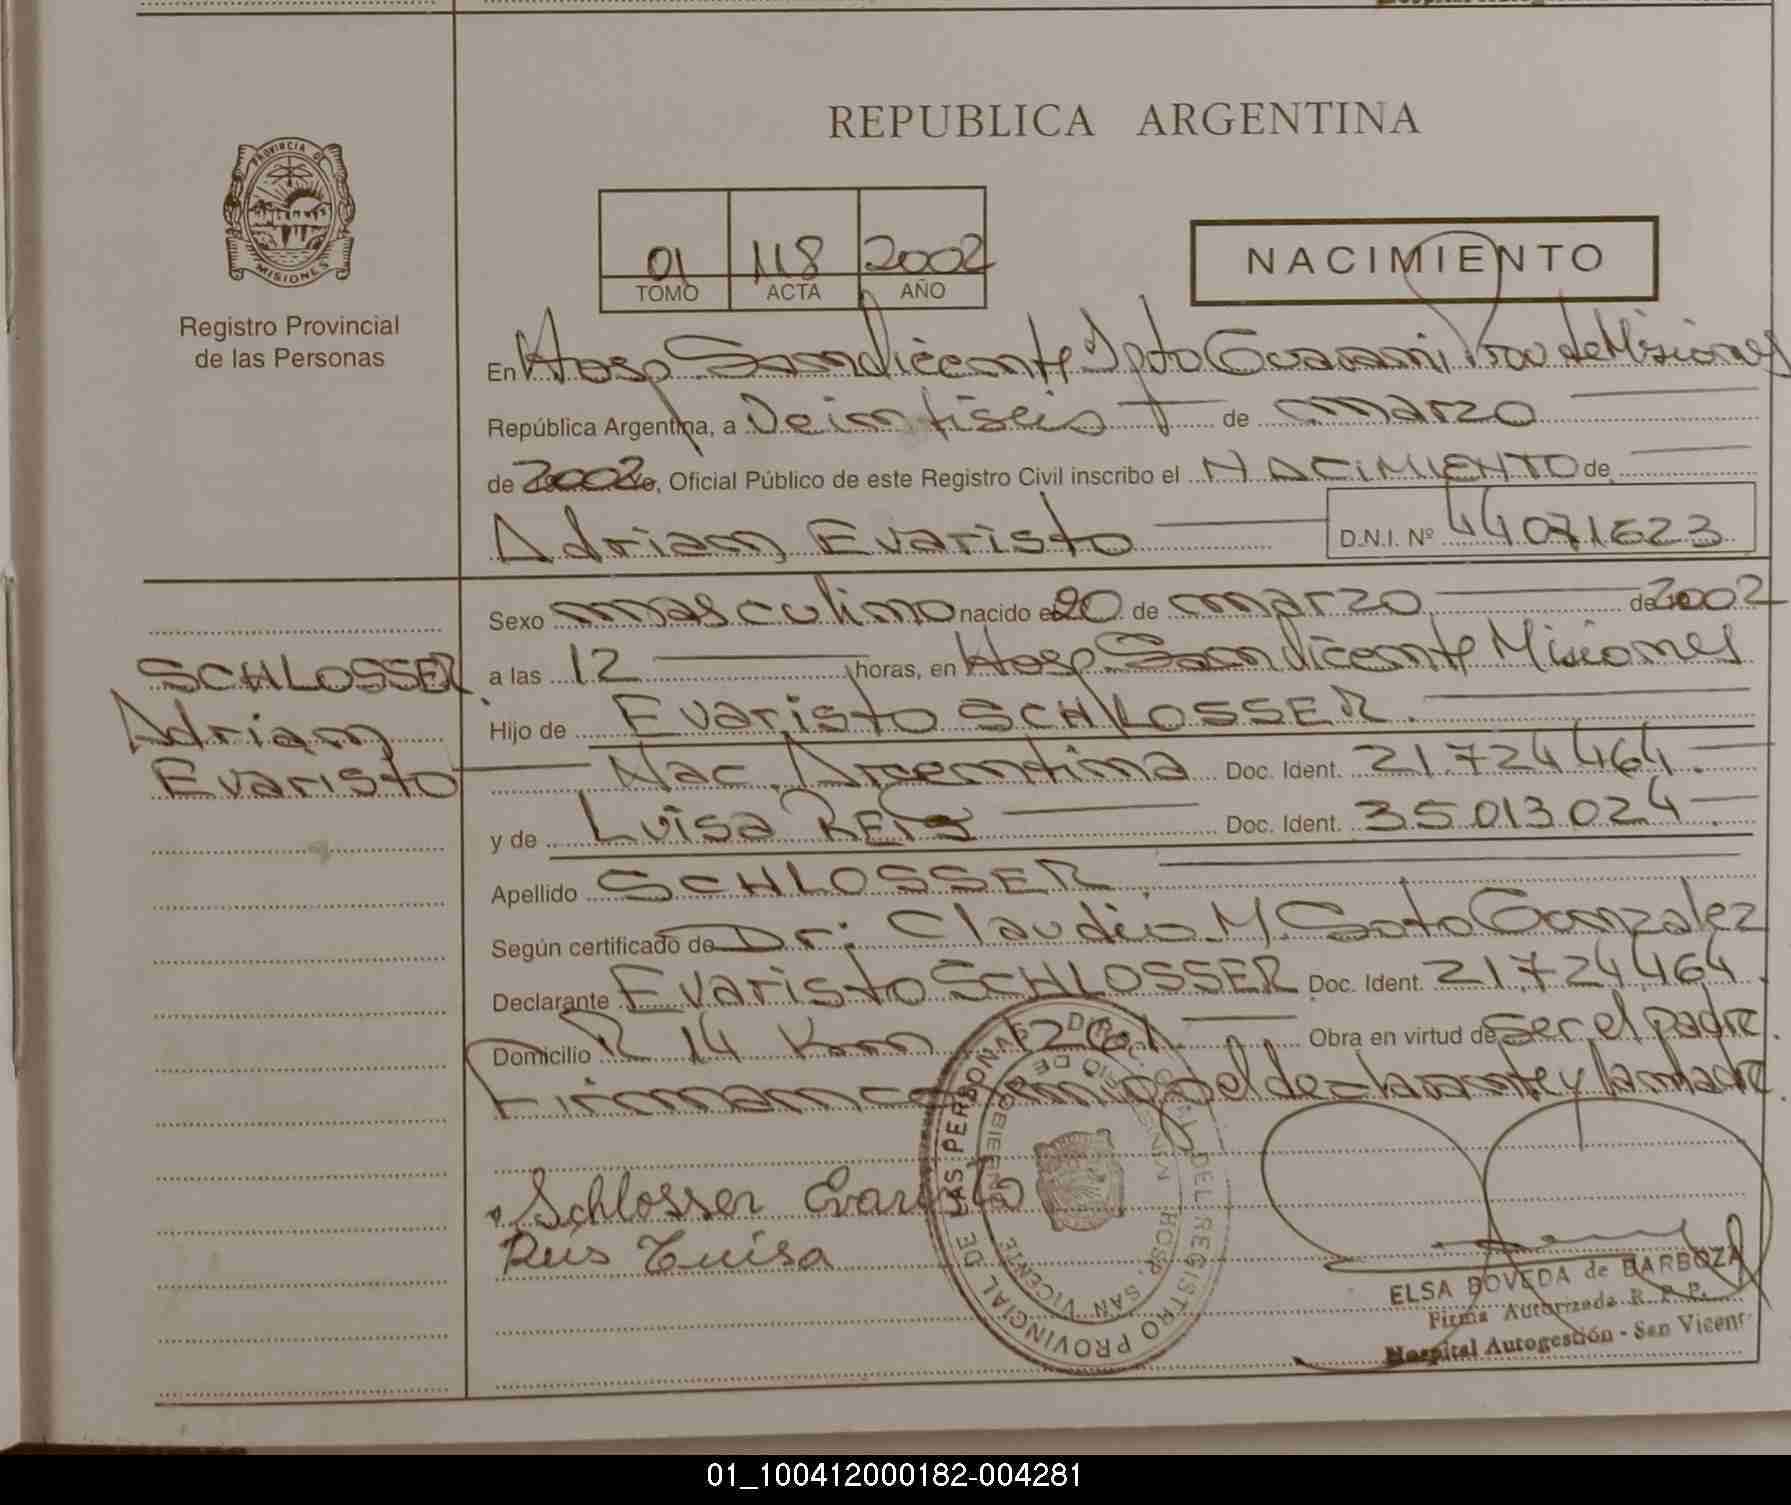 REPUBLICA ARGENTINA
PROVINCIA DE
MISIONES
Registro Provincial
de las Personas
01 118 2002
TOMO ACTA AÑO
NACIMIENTO
En Hosp San Vicente Dpto Guarani Prov de Misiones
República Argentina, a Veintiseis de marzo
de 2002 Yo, Oficial Público de este Registro Civil inscribo el NACIMIENTO de
Adrian Evaristo D.N.I. Nº 44071623
SCHLOSSER
Adrian
Evaristo
Sexo masculino nacido el 20 de marzo de 2002
a las 12 horas, en Hosp San Vicente Misiones
Hijo de Evaristo SCHLOSSER
Nac. Argentina Doc. Ident. 21.724.464.
y de Luisa REIS Doc. Ident. 35.013.024.
Apellido SCHLOSSER
Según certificado de Dr: Claudio M. Soto Gonzalez
Declarante Evaristo SCHLOSSER Doc. Ident. 21.724.464.
Domicilio R 14 Km Obra en virtud de ser el padre.
Firman conmigo el declarante y la madre.
Schlosser Evaristo
Reis Luisa
DIR. DEL REGISTRO PROVINCIAL DE LAS PERSONAS
HOSP. SAN VICENTE
ELSA BOVEDA de BARBOZA
Firma Autorizada R. P. P.
Hospital Autogestión - San Vicent
01_100412000182-004281